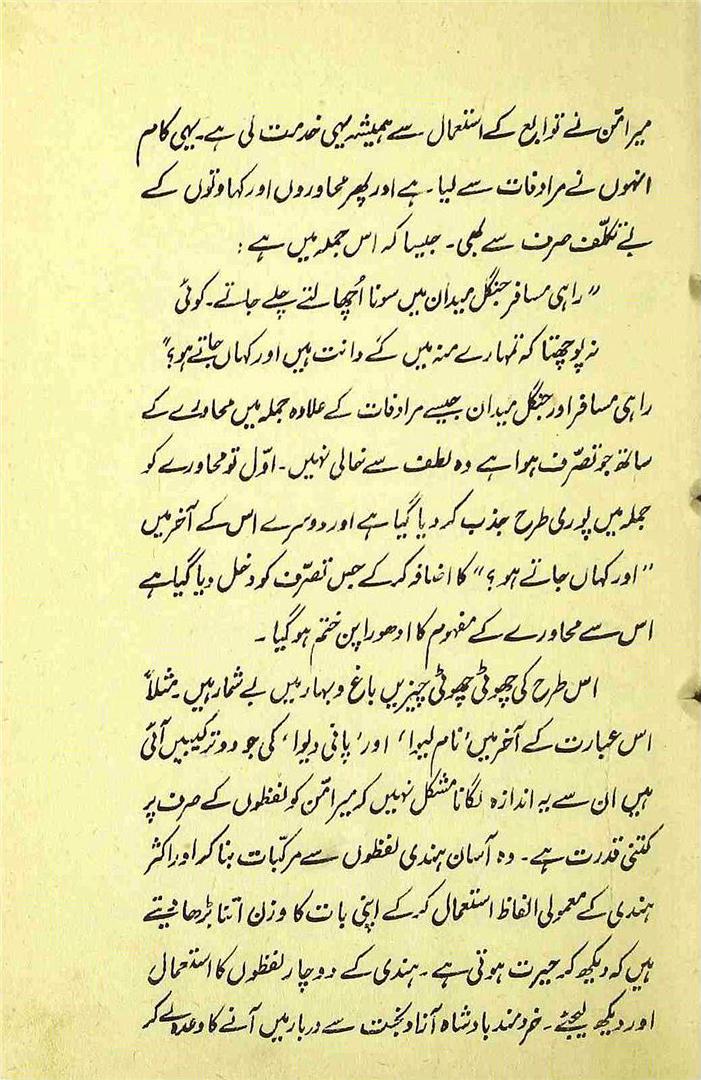 میر امّن نے توابع کے استعمال سے ہمیشہ یہی خدمت لی ہے۔ یہی کام
انہوں نے مرادفات سے لیا۔ ہے اور پھر محاوروں اور کہاوتوں کے
بے تکلّف صرف سے بھی۔ جیسا کہ اس جملہ میں ہے :
" راہی مسافر جنگل میدان میں سونا اُچھالتے چلے جاتے۔ کوئی
نہ پوچھتا کہ تمہارے منہ میں کَے دانت ہیں اور کہاں جاتے ہو؟"
راہی مسافر اور جنگل میدان جیسے مرادفات کے علاوہ جملہ میں محاورے کے
ساتھ جو تصرّف ہوا ہے وہ لطف سے خالی نہیں۔ اوّل تو محاورے کو
جملہ میں پوری طرح جذب کر دیا گیا ہے اور دوسرے اس کے آخر میں
" اور کہاں جاتے ہو؟" کا اضافہ کر کے جس تصرّف کو دخل دیا گیا ہے
اس سے محاورے کے مفہوم کا ادھورا پن ختم ہو گیا ۔
اس طرح کی چھوٹی چھوٹی چیزیں باغ و بہار میں بے شمار ہیں۔ مثلاً
اس عبارت کے آخر میں ' نام لیوا ' اور ' پانی دیوا ' کی جو دو ترکیبیں آئی
ہیں ان سے یہ اندازہ لگانا مشکل نہیں کہ میر امّن کو لفظوں کے صرف پر
کتنی قدرت ہے۔ وہ آسان ہندی لفظوں سے مرکّبات بنا کر اور اکثر
ہندی کے معمولی الفاظ استعمال کر کے اپنی بات کا وزن اتنا بڑھا دیتے
ہیں کہ دیکھ کر حیرت ہوتی ہے۔ ہندی کے دو چار لفظوں کا استعمال
اور دیکھ لیجئے۔ خردمند بادشاہ آزاد بخت سے دربار میں آنے کا وعدہ لے کر